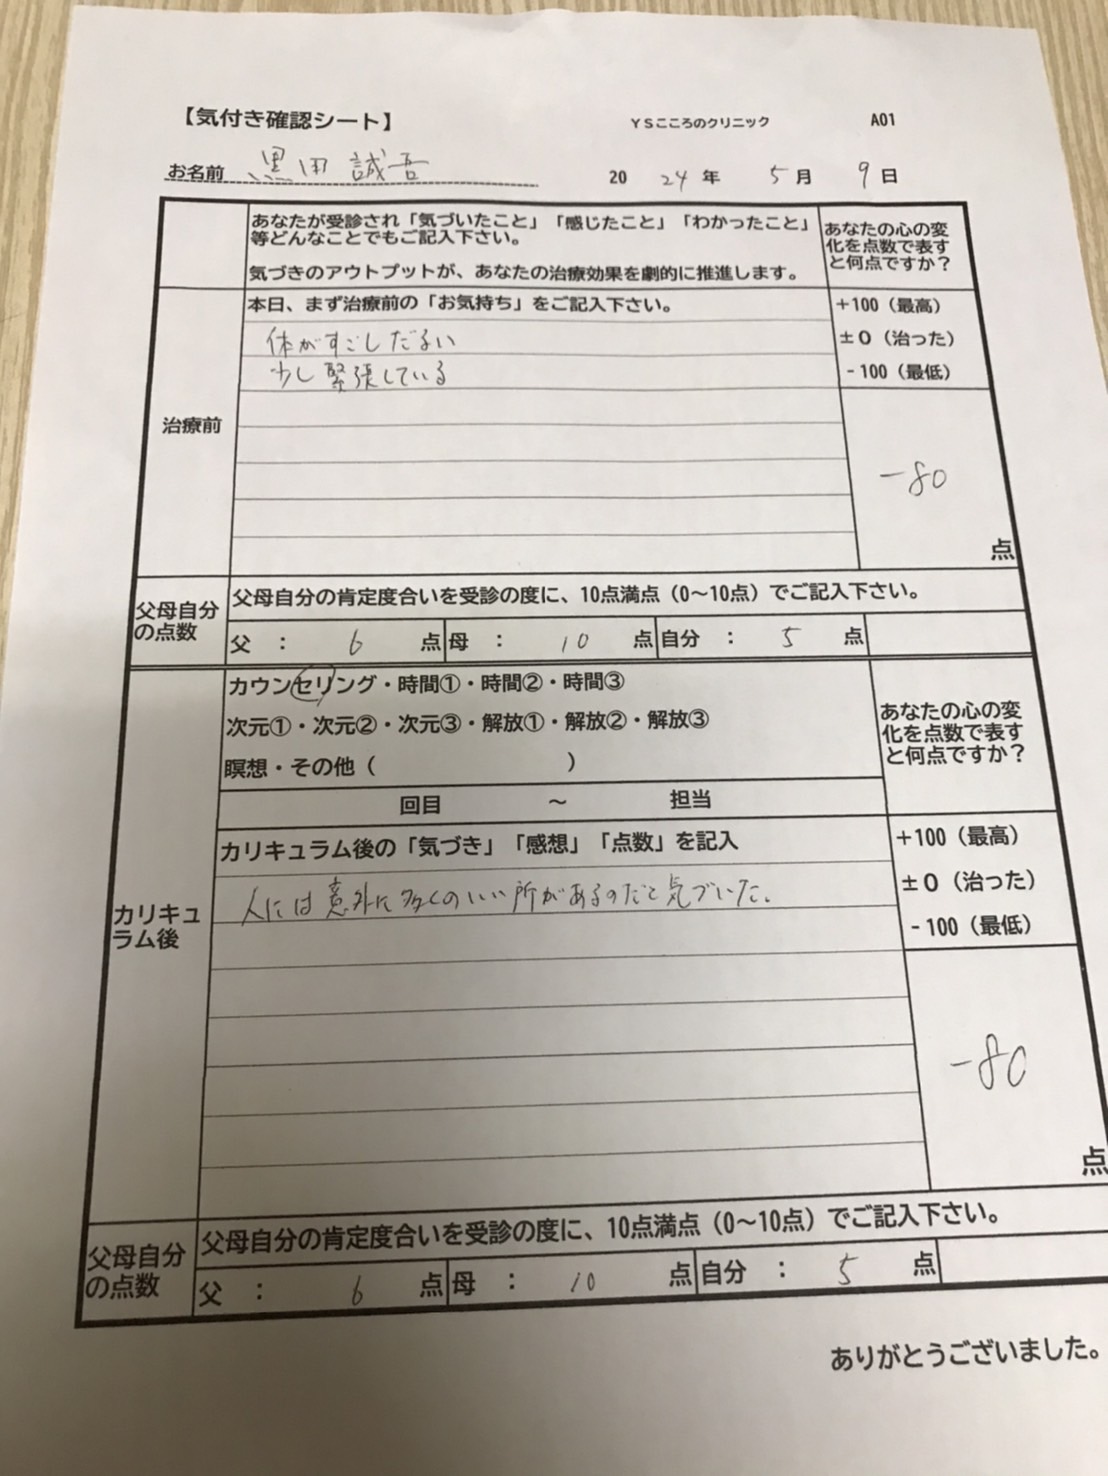 【気付き確認シート】 YSこころのクリニック A01
お名前 黒田 誠吾 20 24 年 5 月 9 日
あなたが受診され「気づいたこと」「感じたこと」「わかったこと」
等どんなことでもご記入下さい。
気づきのアウトプットが、あなたの治療効果を劇的に推進します。
あなたの心の変
化を点数で表す
と何点ですか？
治療前
本日、まず治療前の「お気持ち」をご記入下さい。
体がすこしだるい
少し緊張している
+100（最高）
±0（治った）
-100（最低）
-80
点
父母自分
の点数
父母自分の肯定度合いを受診の度に、10点満点（0～10点）でご記入下さい。
父 ： 6 点 母 ： 10 点 自分 ： 5 点
カウンセリング・時間①・時間②・時間③
次元①・次元②・次元③・解放①・解放②・解放③
瞑想・その他（ ）
回目 ～ 担当
あなたの心の変
化を点数で表す
と何点ですか？
カリキュ
ラム後
カリキュラム後の「気づき」「感想」「点数」を記入
人には意外に多くのいい所があるのだと気づいた。
+100（最高）
±0（治った）
-100（最低）
-80
点
父母自分
の点数
父母自分の肯定度合いを受診の度に、10点満点（0～10点）でご記入下さい。
父 ： 6 点 母 ： 10 点 自分 ： 5 点
ありがとうございました。